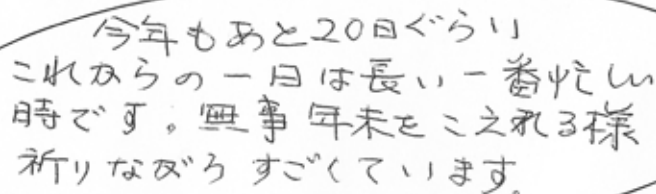 今年もあと20日ぐらい
これからの一日は長い一番忙しい
時です。無事年末をこえれる様
祈りながらすごくています。